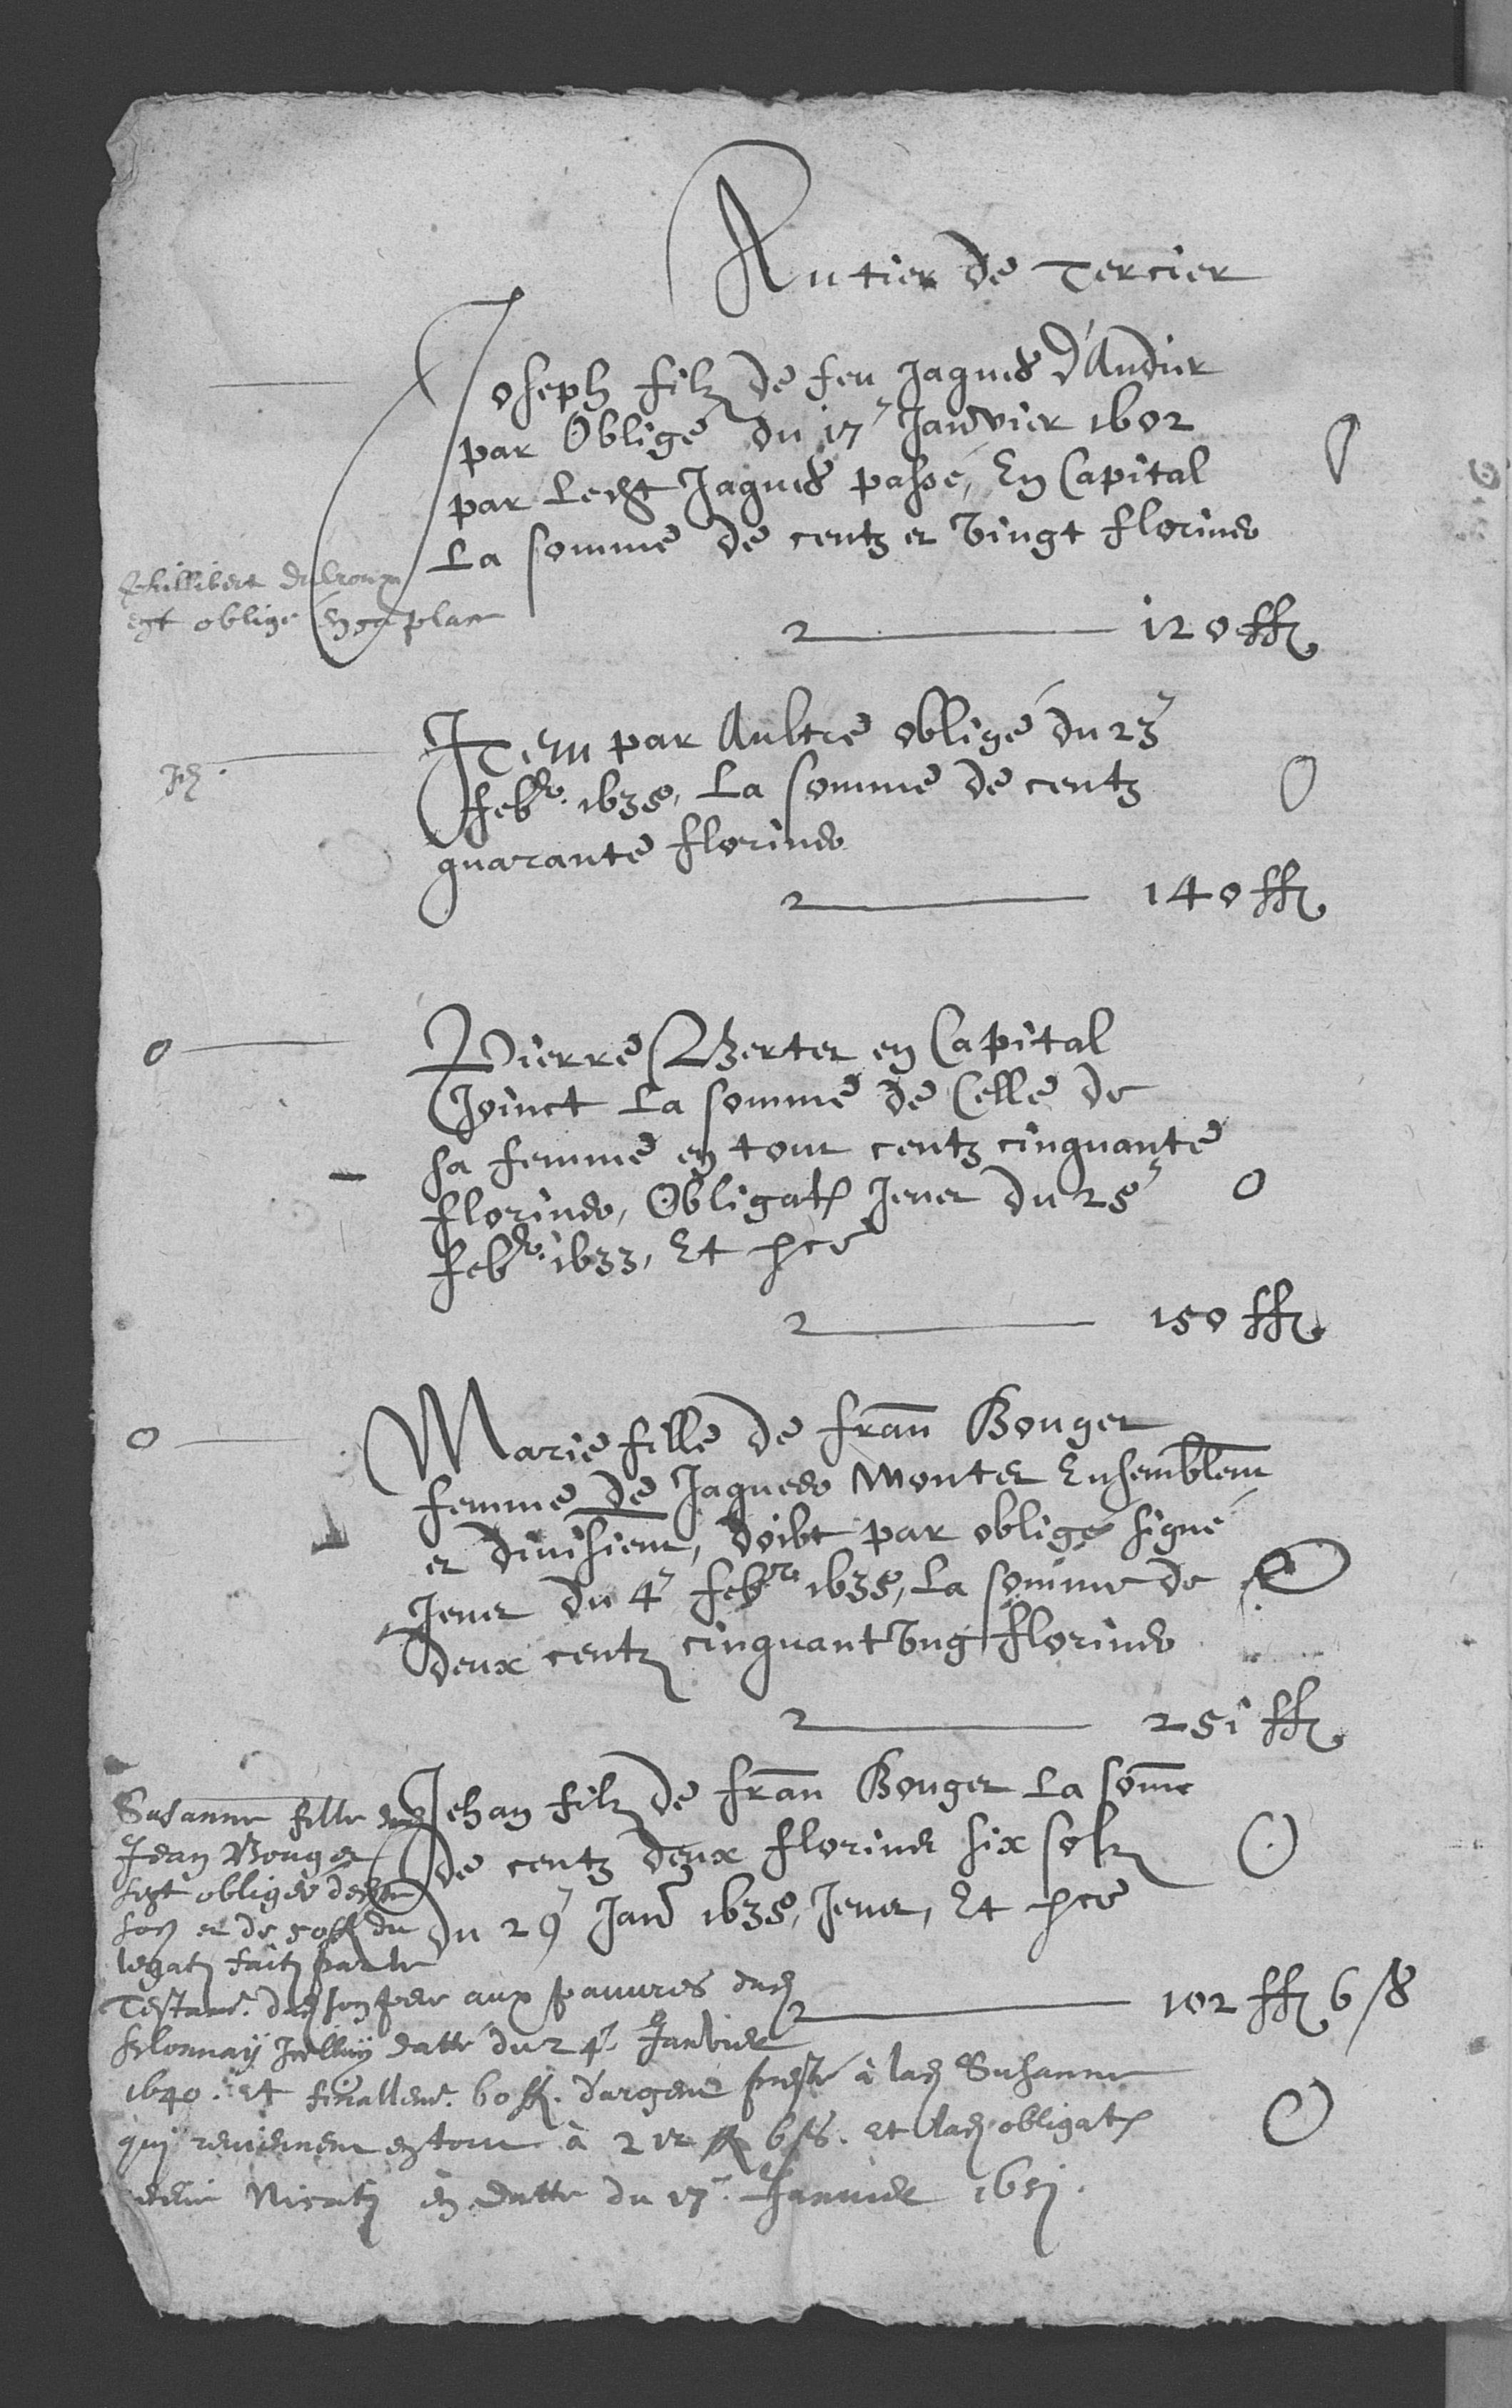 Rutier de Tercier
Joseph filz de feu Jaques d'Andier
par Obligé du 17e Janvier 1602
par Ledt Jaques passé, En Capital
La somme de centz et Vingt florins
Phillibert
est obligé en sa place
2 120 ff
Item par Aultre obligé du 23e
febr. 1635, La somme de centz
quarante florins
2 140 ff
0
Pierre Werter en Capital
Joinct La somme de Celle de
sa femme en tout centz cinquante
florins, Obligaton Jenet du 25e
febr. 1633, Et pce
2 150 ff
0
Marie fille de fran Bouget
femme de Jaques Montet Ensemblemt
et divisiemt, doibt par obligé signé
Jenet du 4e febr. 1635, La somme de
deux centz cinquant Ung florins
2 251 ff
Jehan filz de fran Bouget La some
de centz deux florins six solz
du 29e Janv 1635, Jenet, Et pce
2 102 ff 6 ß
Susanne fille dud
Jean Bouget
sest obligée
son et de 50 ff du
legatz faitz par le
Testamt. dud son pere aux pauvres dud
datté du 24e Janvier
1640. Et finallemt. 60 ff. d'argent presté à lad Susanne
qui reviennent en tout à 212 ff 6 ß. et lad obligaton
en datte du 17e Janvier 1651.